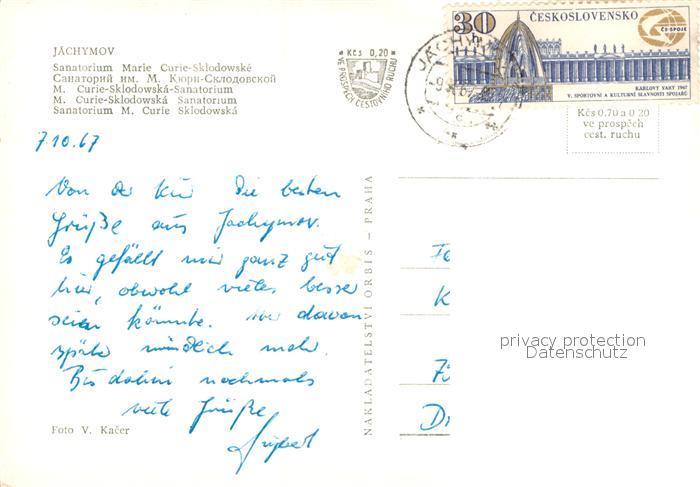 JÁCHYMOV
Sanatorium Marie Curie-Sklodowské
Санаторий им. М. Кюри-Склодовской
M. Curie-Sklodowská-Sanatorium
M. Curie-Sklodowská Sanatorium
Sanatorium M. Curie Sklodowská
Kčs 0,20
VE PROSPĚCH CESTOVNÍHO RUCHU
JÁCHYMOV
30 h
ČESKOSLOVENSKO
ČS SPOJE
KARLOVY VARY 1967
V. SPORTOVNÍ A KULTURNÍ SLAVNOSTI SPOJAŘŮ
Kčs 0,70 a 0,20
ve prospěch
cest. ruchu
7.10.67
Von der Kur die besten
Grüße aus Jachymov.
Es gefällt mir ganz gut
hier, obwohl vieles besser
sein könnte. davon
später mündlich mehr.
Bis dahin nochmals
viele Grüße
NAKLADATELSTVÍ ORBIS – PRAHA
Foto V. Kačer
privacy protection
Datenschutz